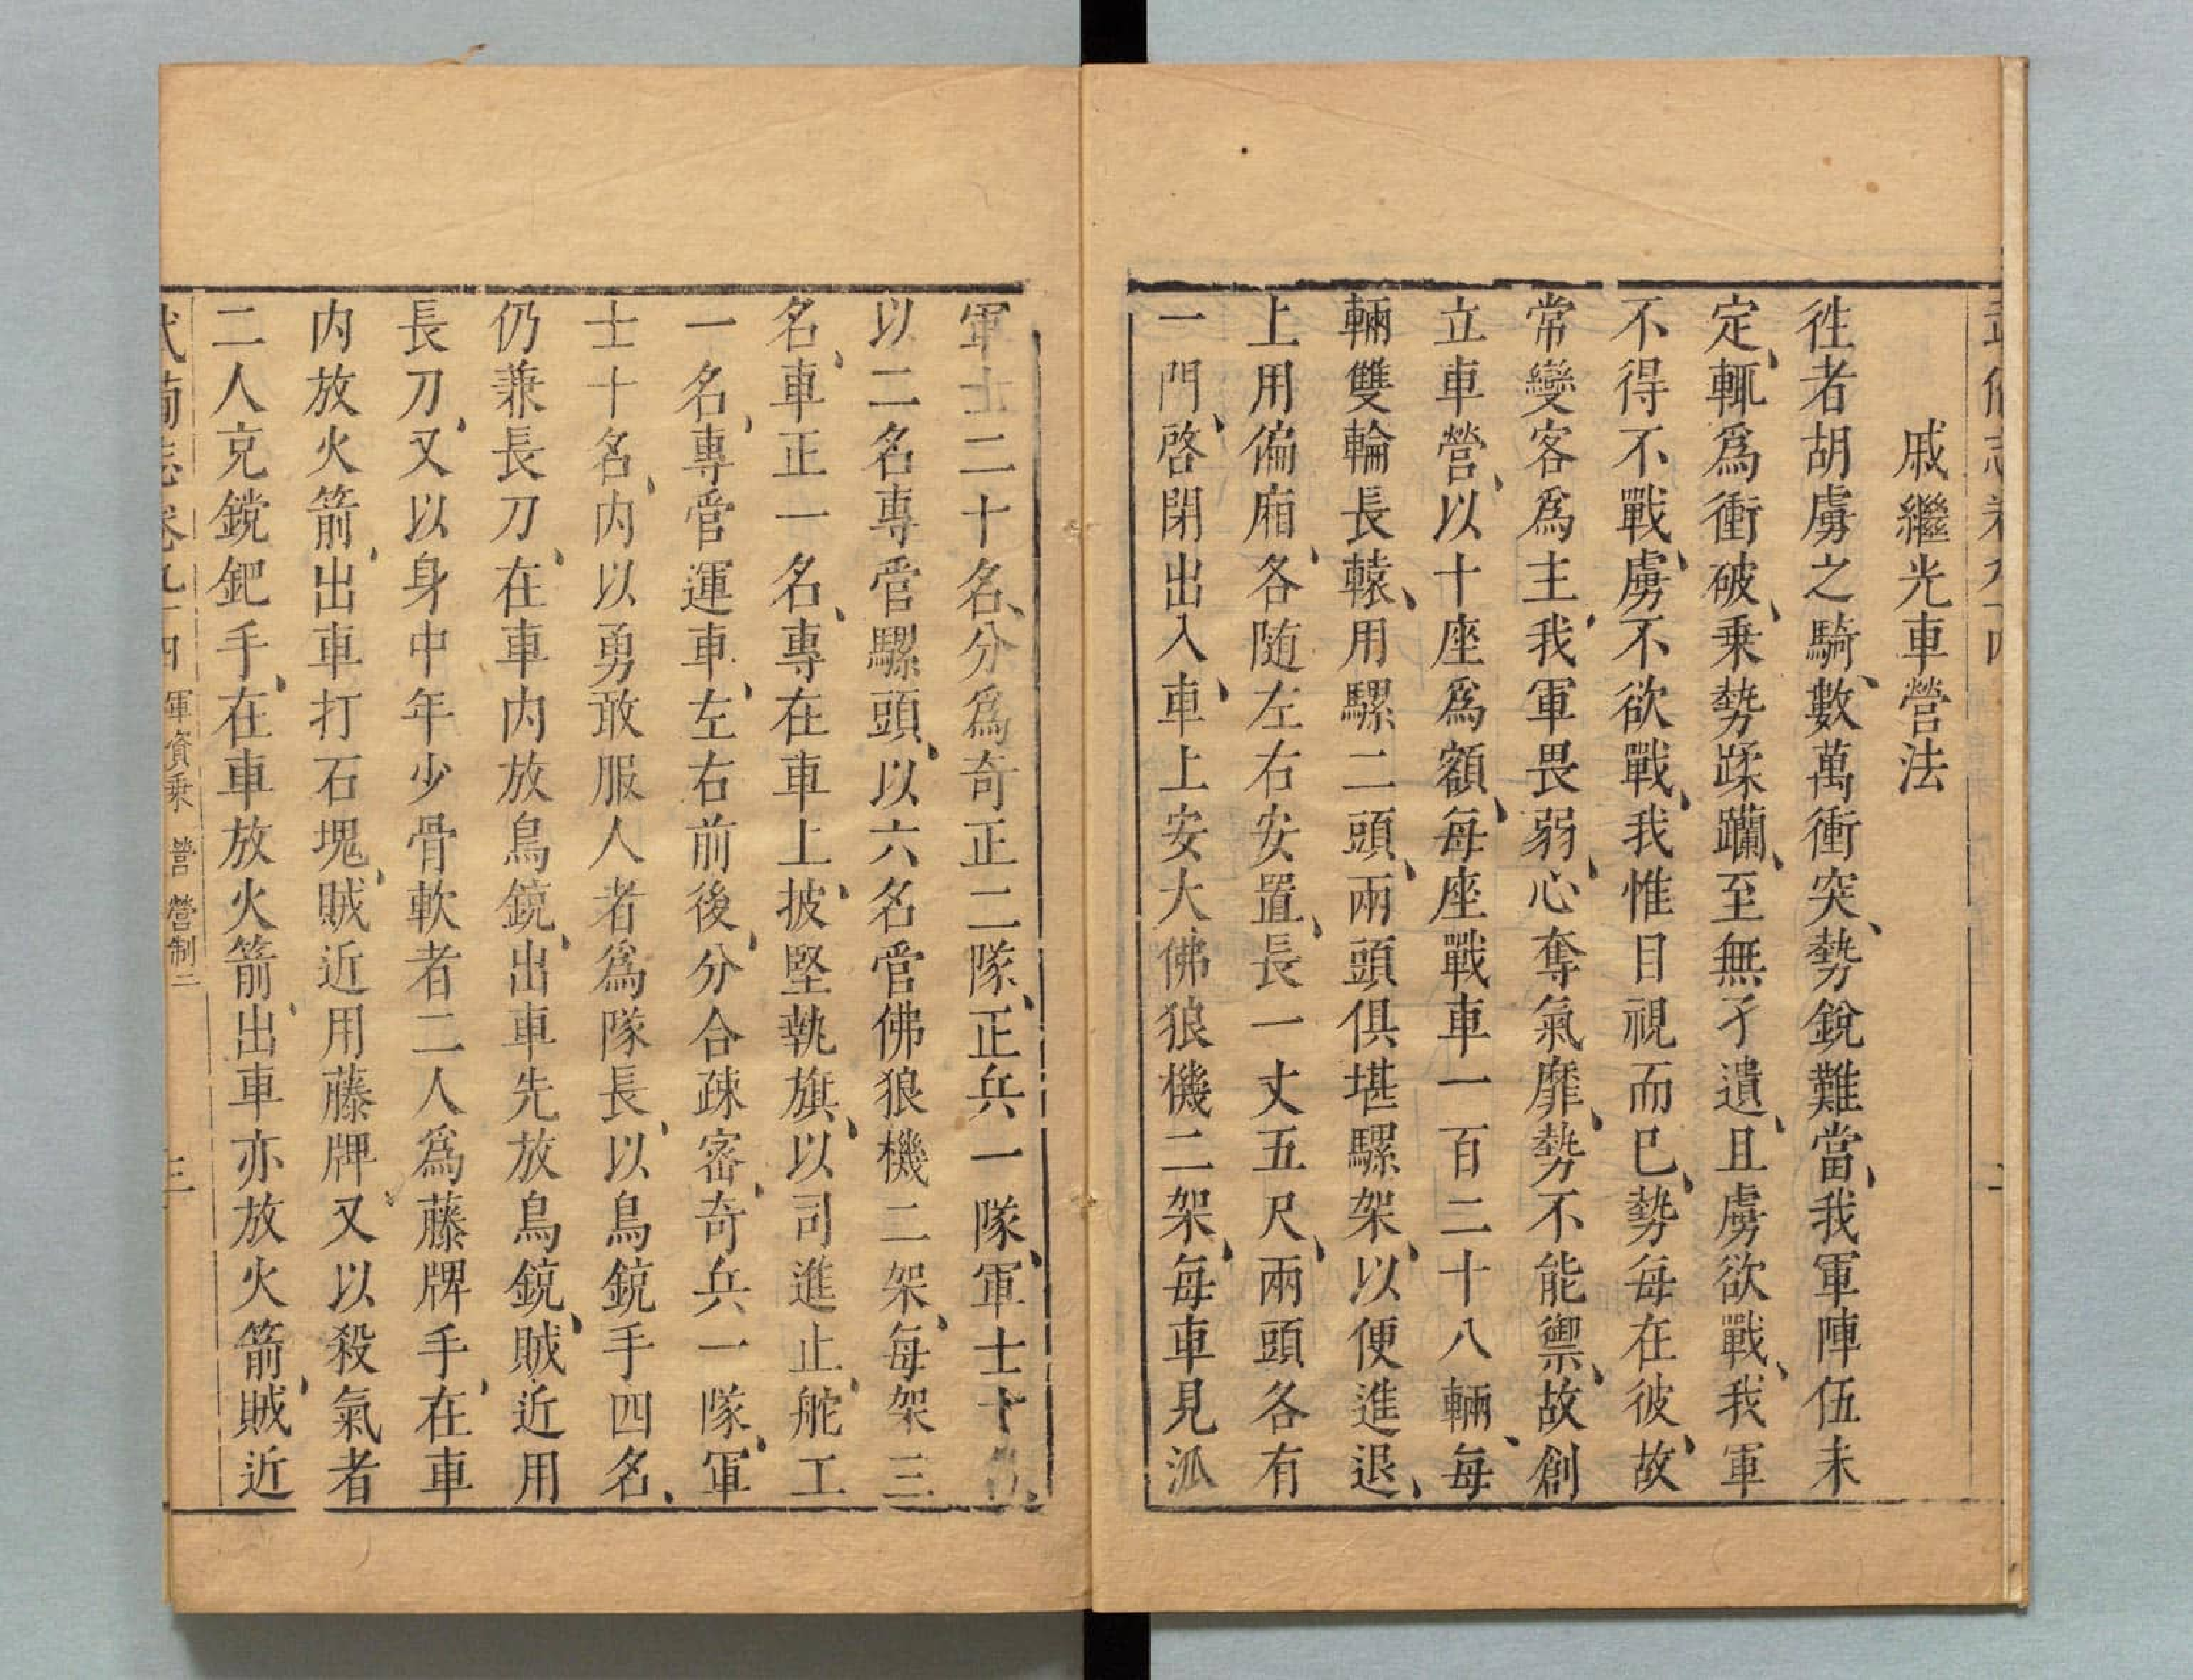 戚繼光車營法
徃者胡虜之騎、數萬衝突、勢銳難當、我軍陣伍未
定、輒爲衝破、乗勢蹂躪、至無孑遺、且虜欲戰、我軍
不得不戰、虜不欲戰、我惟目視而已、勢每在彼、故
常變客爲主、我軍畏弱、心奪氣靡、勢不能禦、故創
立車營、以十座爲額、每座戰車一百二十八輛、每
輛雙輪長轅、用騾二頭、兩頭俱堪騾架、以便進退、
上用偏廂、各随左右安置、長一丈五尺、兩頭各有
一門、啓閉出入、車上安大佛狼機二架、每車見派
軍士二十名、分爲奇正二隊、正兵一隊、軍士十名、
以二名專管騾頭、以六名管佛狼機二架、每架三
名、車正一名、專在車上、披堅執旗、以司進止、舵工
一名、專管運車、左右前後、分合疎密、奇兵一隊、軍
士十名、内以勇敢服人者爲隊長、以鳥銃手四名、
仍兼長刀、在車内放鳥銃、出車先放鳥銃、賊近用
長刀、又以身中年少骨軟者二人爲藤牌手、在車
内放火箭、出車打石塊、賊近用藤牌、又以殺氣者
二人充鎲鈀手、在車放火箭、出車亦放火箭、賊近
武備志卷九十四 軍資乗 營 營制二 三